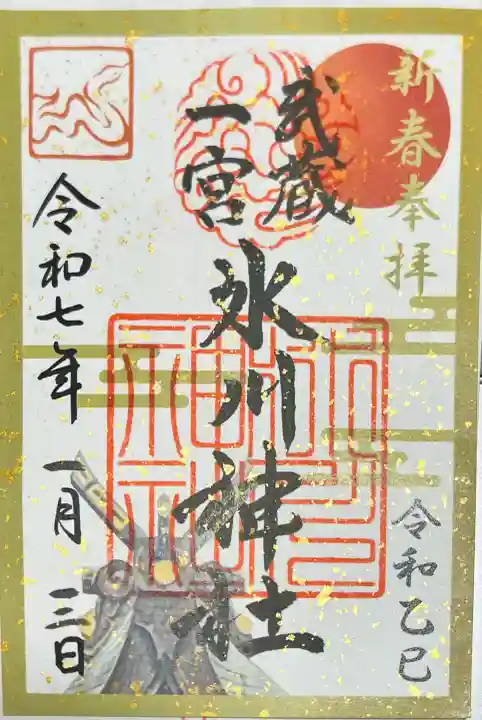 新春奉拝
武蔵
一宮
氷川神社
令和乙巳
令和七年 一月 三日